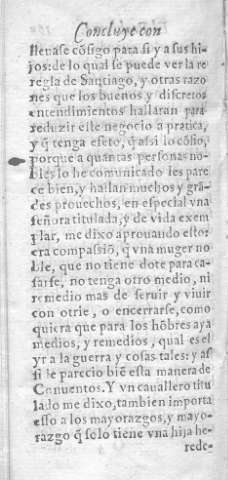 Concluye con
lleuase cõsigo para si y a sus hi
jos: de lo qual se puede ver la re
regla de Santiago, y otras razo
nes que los buenos y discretos
entendimientos hallaràn para
reduzir este negocio a pratica,
y q̃ tenga efeto, q̃ assi lo cõfio,
porque a quantas personas no-
bles lo he comunicado les pare
ce bien, y hallan muchos y grã
des prouechos, en especial vna
señora titulada, y de vida exem
plar, me dixo aprouando esto:
era compassiõ, q̃ vna muger no
ble, que no tiene dote para ca-
sarse, no tenga otro medio, ni
remedio mas de seruir y viuir
con otrie, o encerrarse, como
quiera que para los hõbres aya
medios, y remedios, qual es el
yr a la guerra y cosas tales: y as
si le parecio biẽ esta manera de
Conuentos. Y vn cauallero titu
lado me dixo, tambien importa
esso a los mayorazgos, y mayo-
razgo q̃ solo tiene vna hija he-
rede-